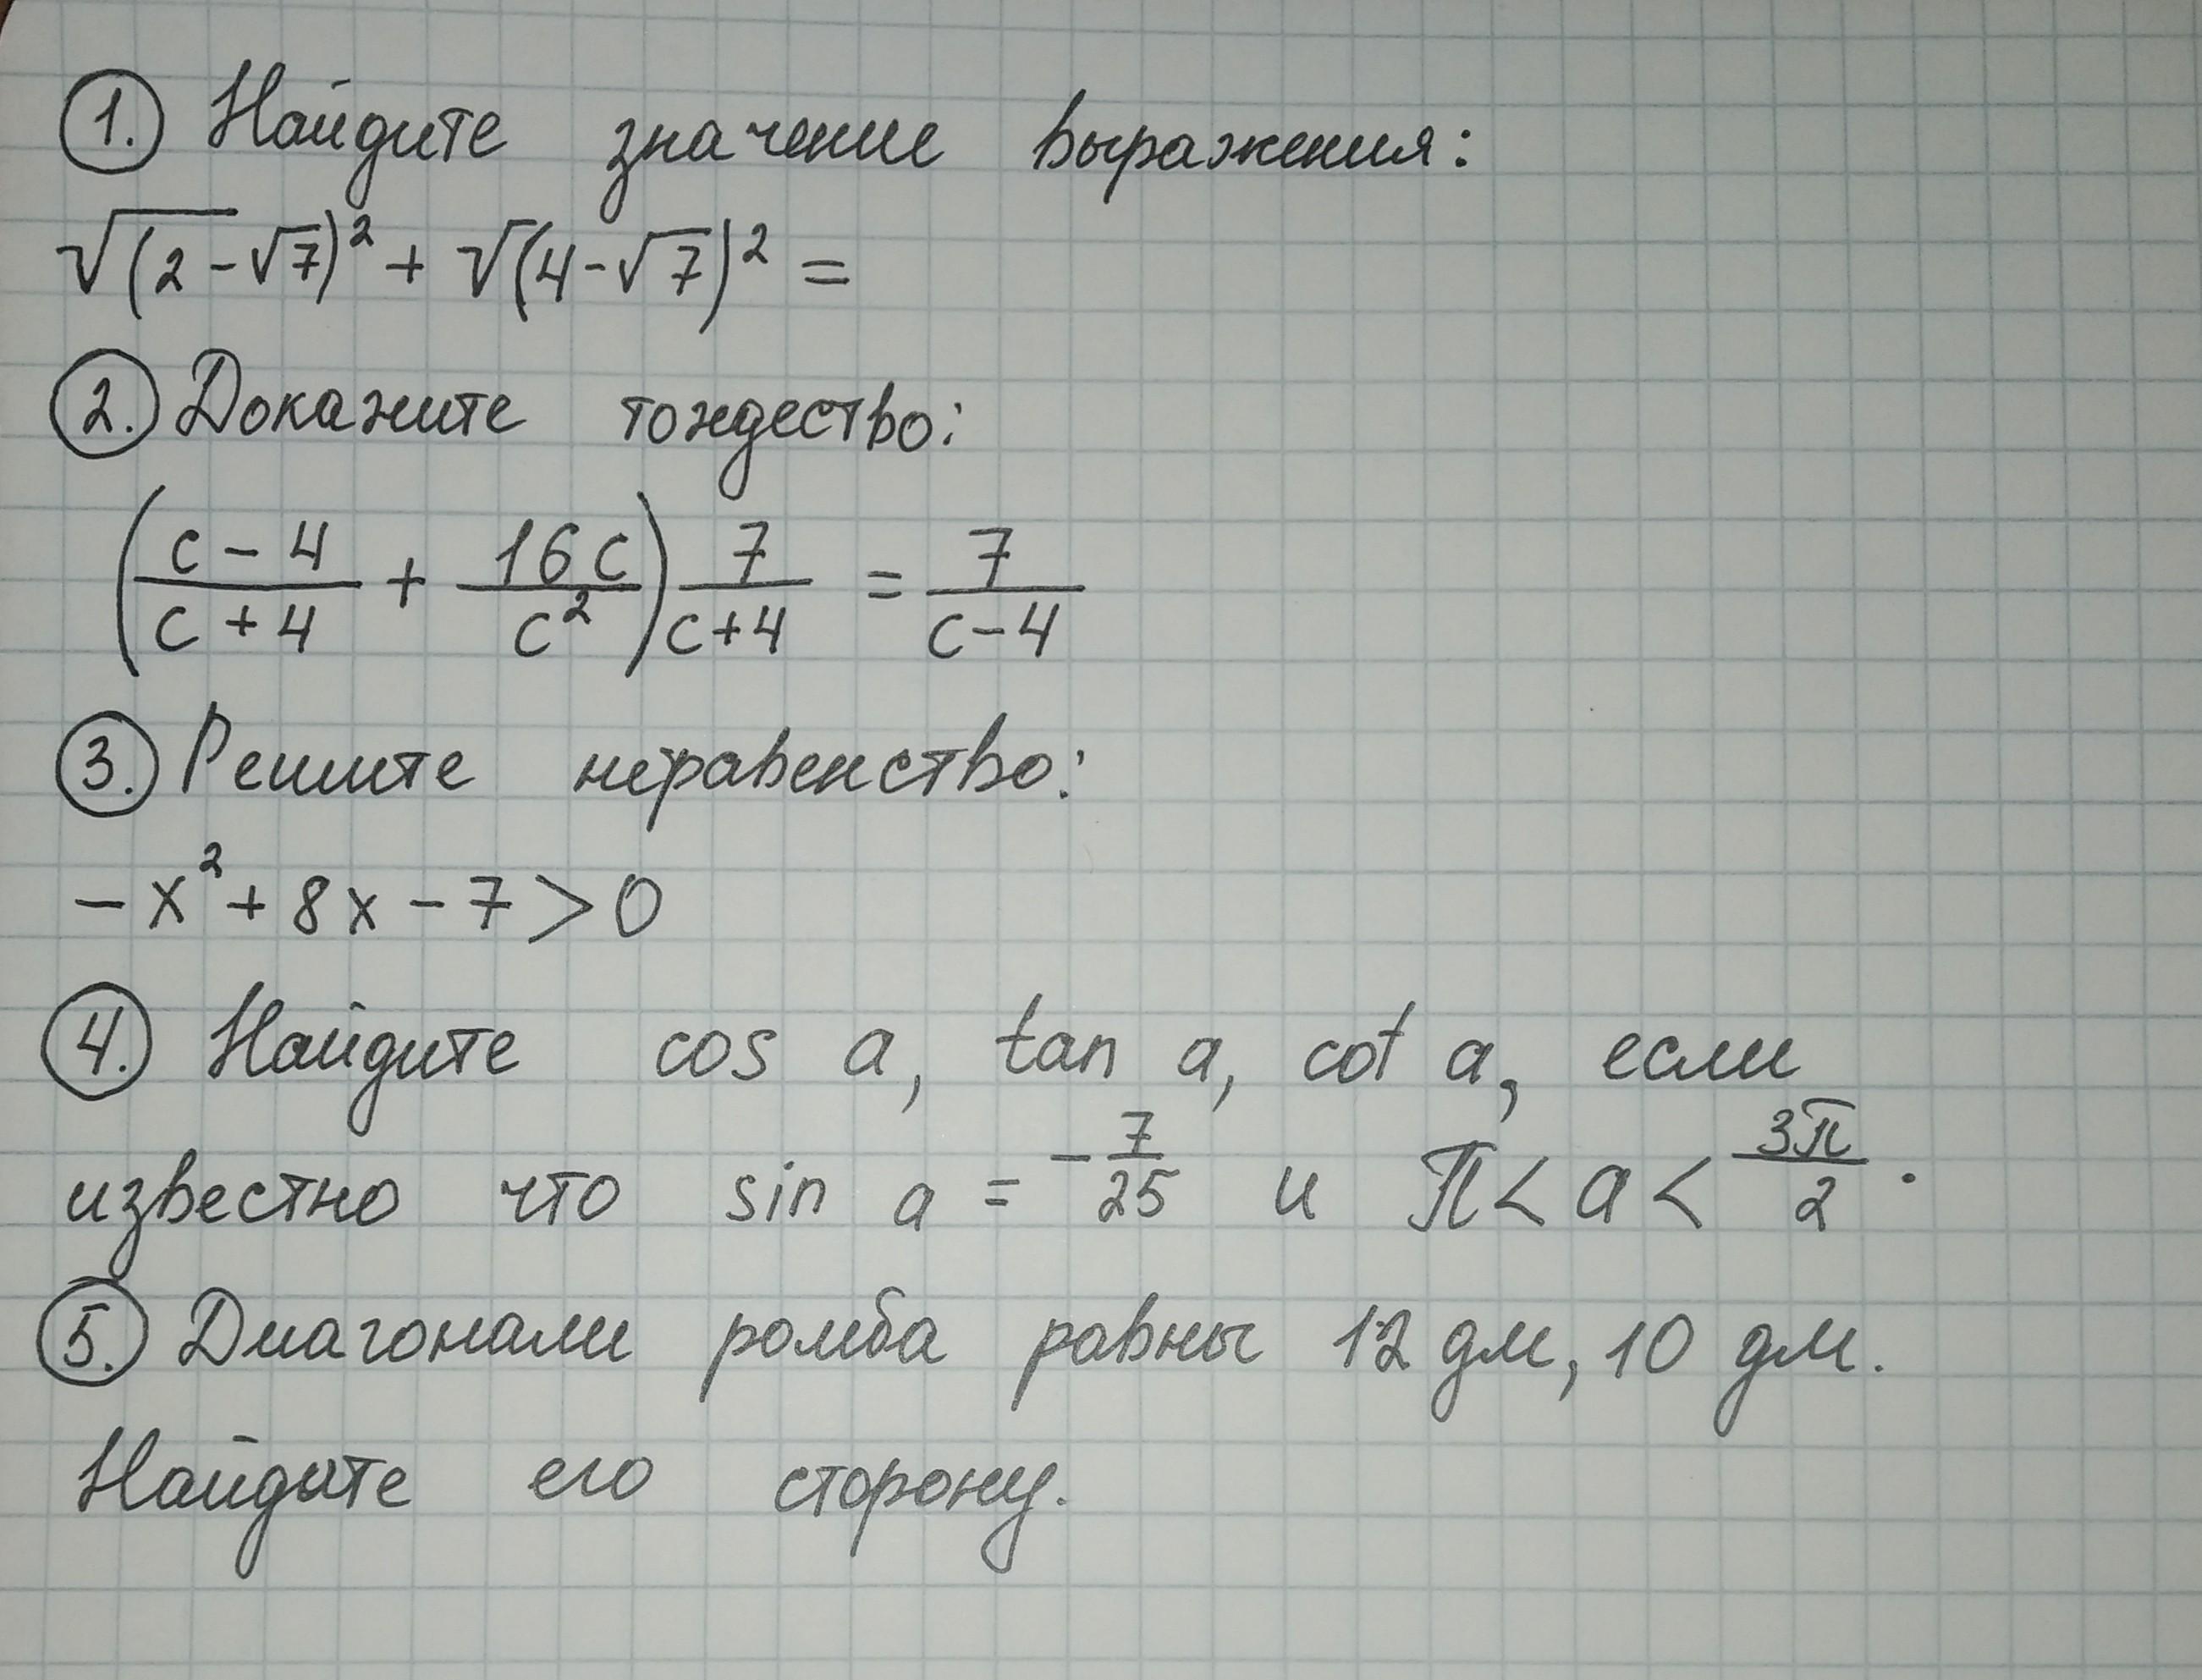 1. Найдите значение выражения:
√(2-√7)² + √(4-√7)² =
2. Докажите тождество:
((c-4)/(c+4) + 16c/c²) 7/(c+4) = 7/(c-4)
3. Решите неравенство:
-x² + 8x - 7 > 0
4. Найдите cos a, tan a, cot a, если
известно что sin a = -7/25 и π < a < 3π/2.
5. Диагонали ромба равны 12 дм, 10 дм.
Найдите его сторону.